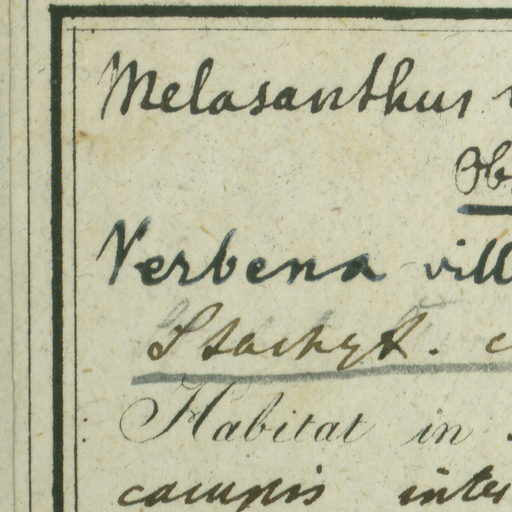 Melasanthus
Ob
Verbena vill
Stachyt. c
: Habitat in
campis inter